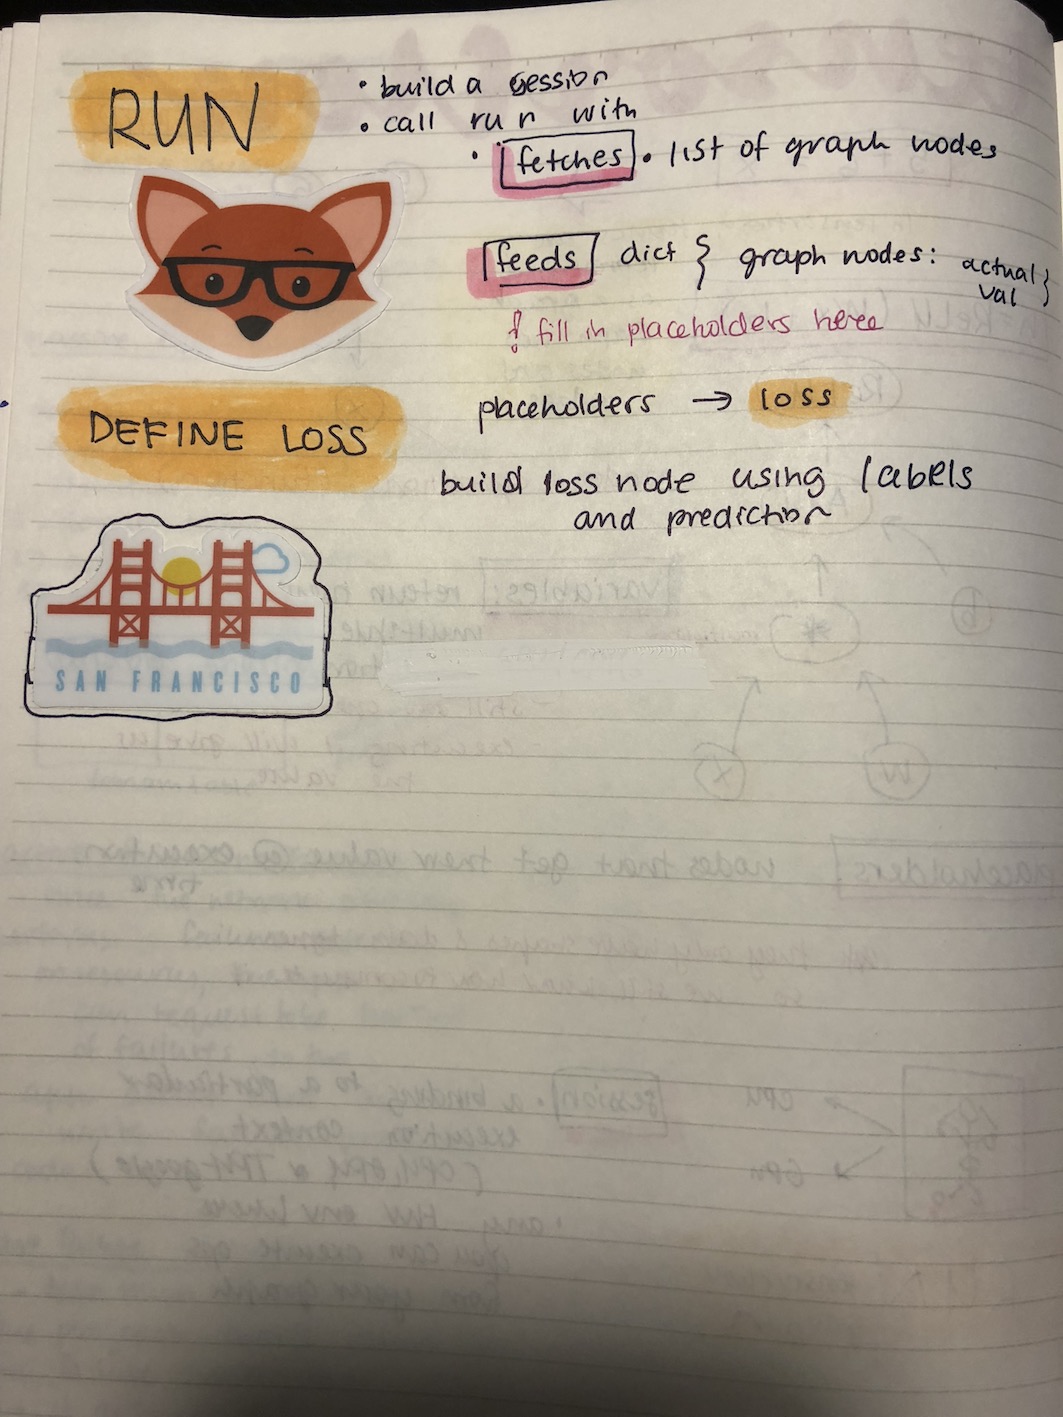 RUN
• build a session
• call run with
• fetches • list of graph nodes
feeds dict { graph nodes: actual val }
! fill in placeholders here
DEFINE LOSS
placeholders → loss
build loss node using labels
and prediction
SAN FRANCISCO